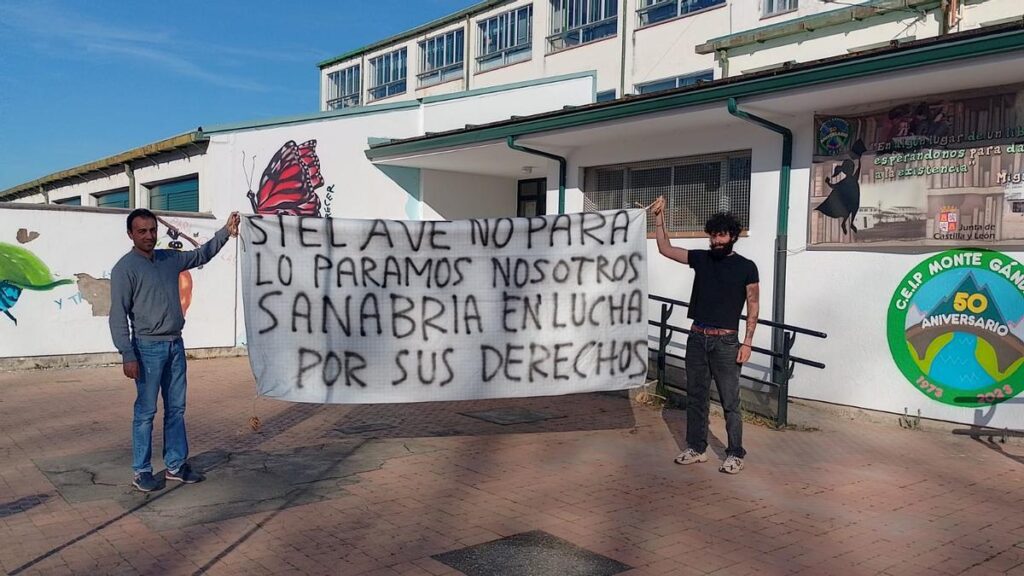 SI EL AVE NO PARA
LO PARAMOS NOSOTROS
SANABRIA EN LUCHA
POR SUS DERECHOS
esperándonos para da
a la existencia
Junta de
Castilla y León
C.E.I.P MONTE
50
ANIVERSARIO
1973